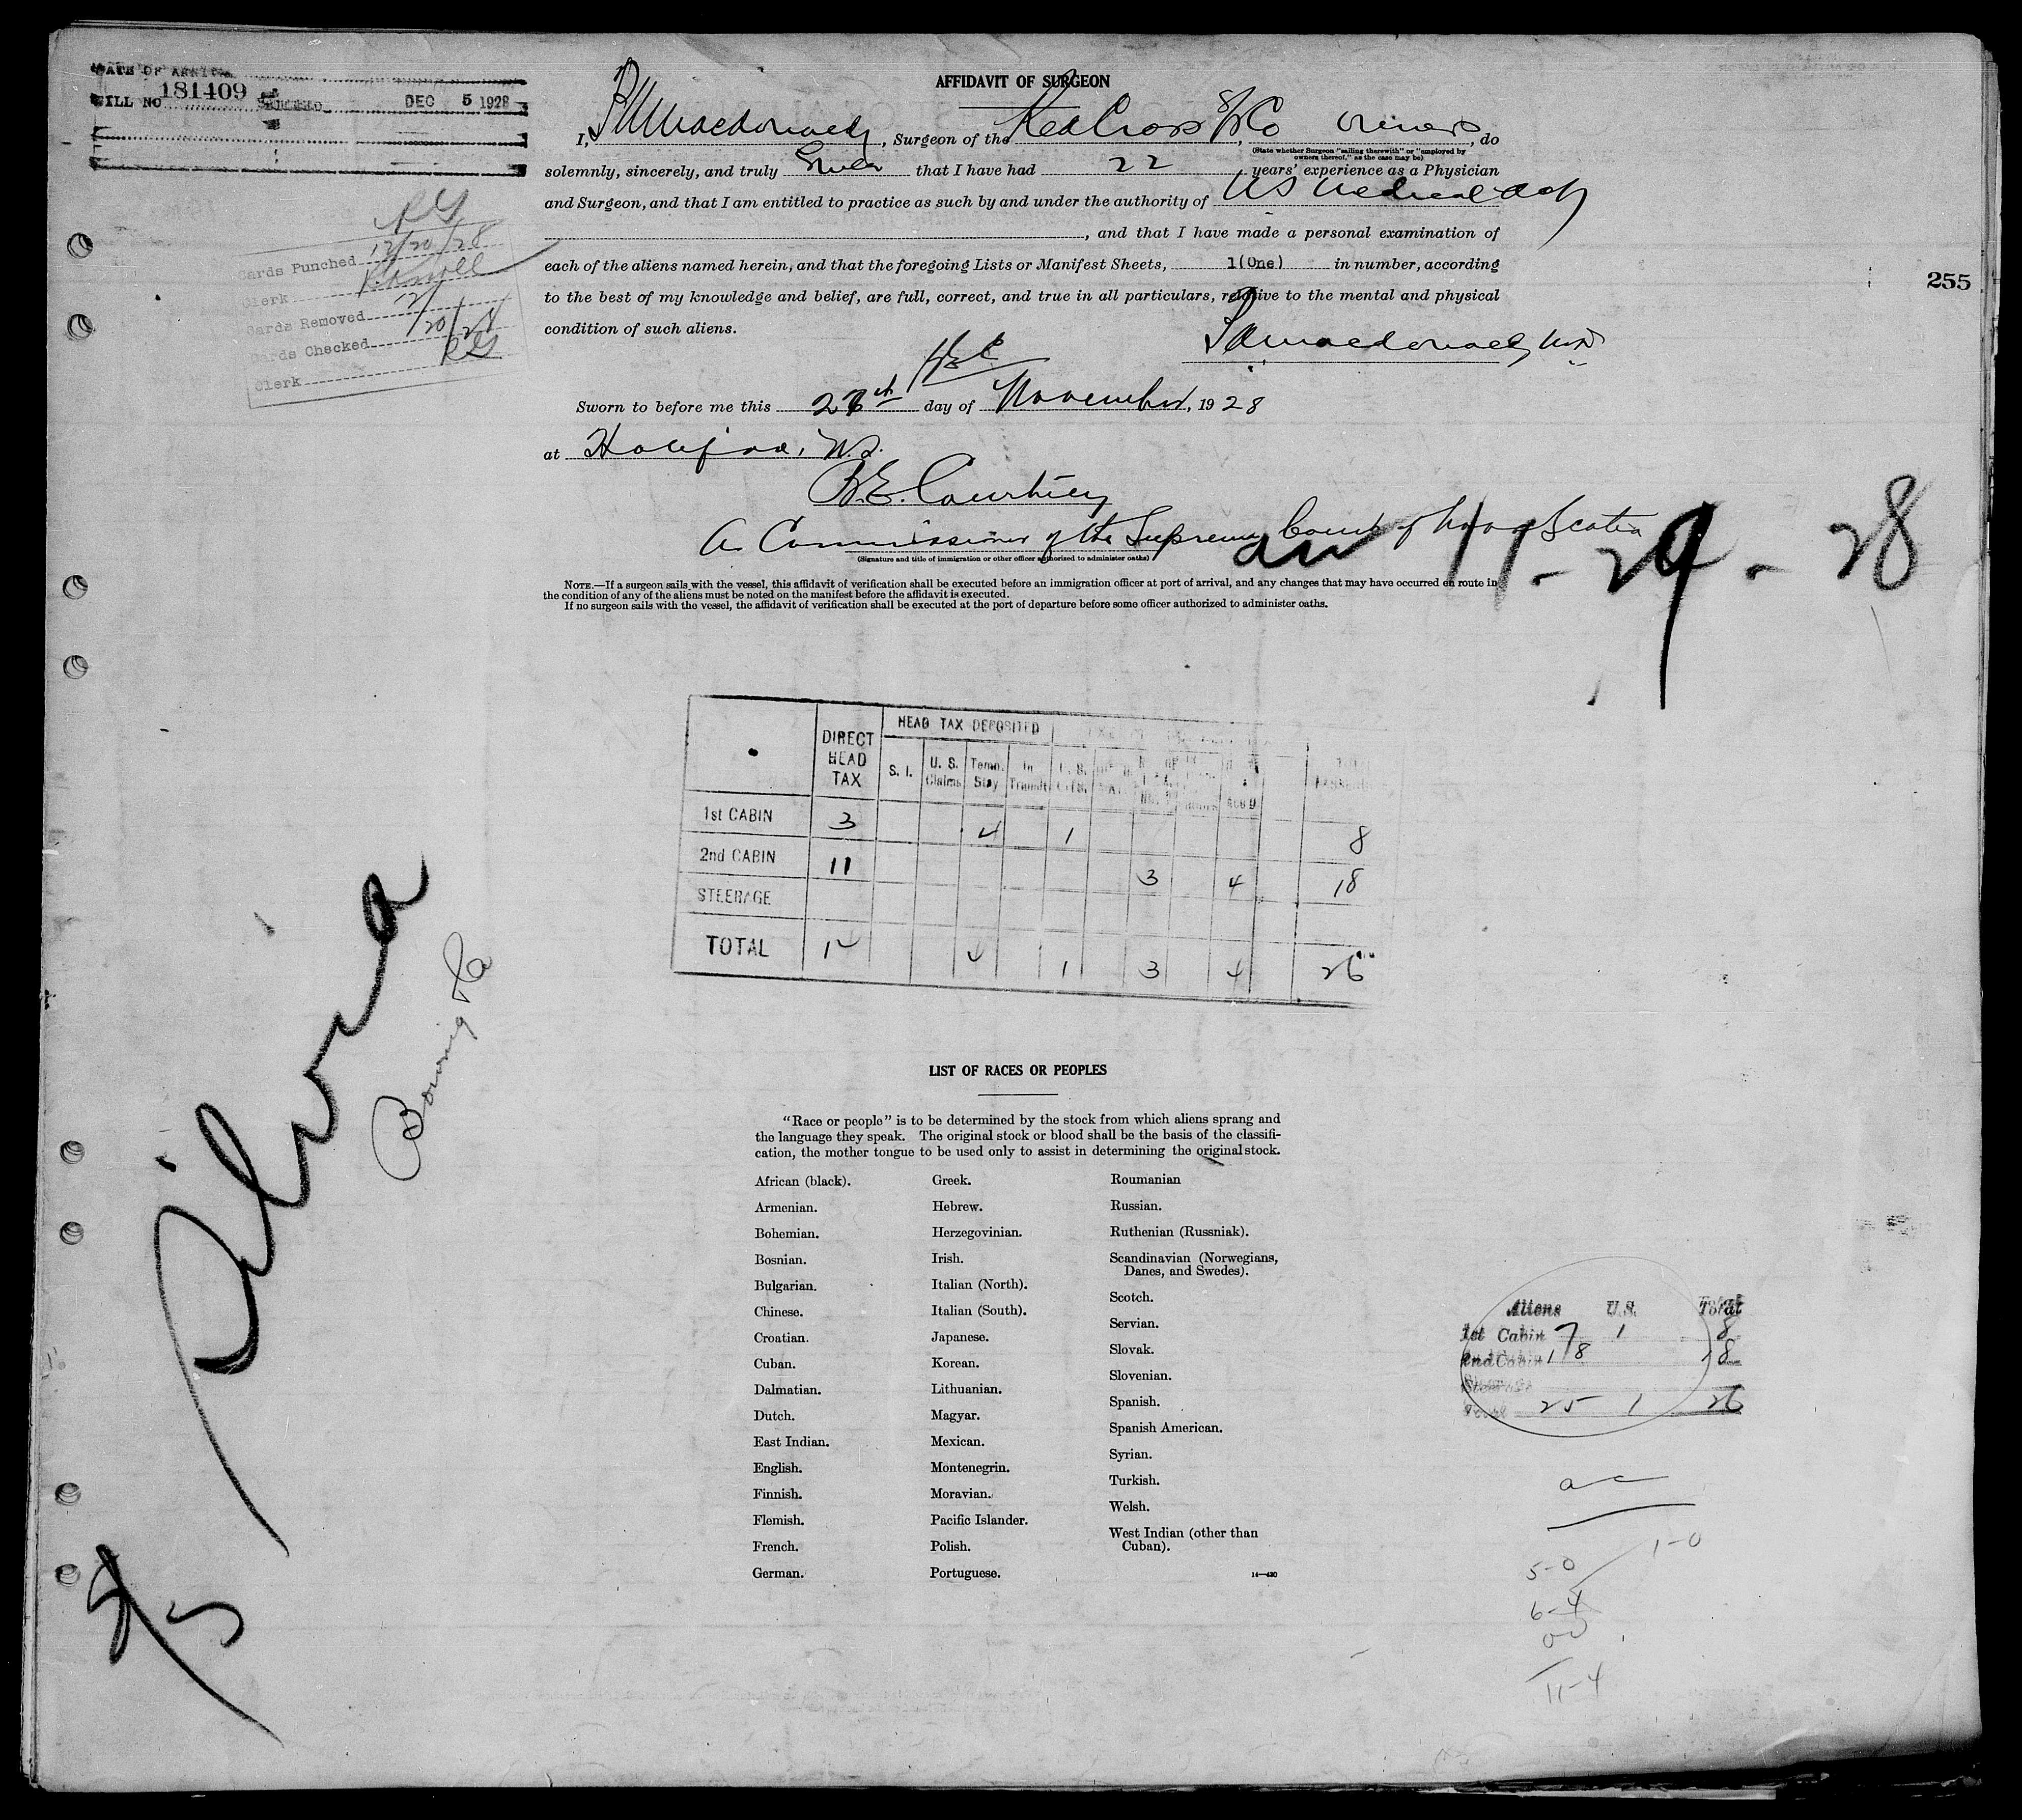 DATE OF ARRIVAL
BILL NO. 181409
DEC 5 1928
AFFIDAVIT OF SURGEON
I, Macdonald, Surgeon of the Red Cross S/S Co, owners, do
(State whether Surgeon "sailing therewith" or "employed by
owners thereof," as the case may be)
solemnly, sincerely, and truly swear that I have had 22 years' experience as a Physician
and Surgeon, and that I am entitled to practice as such by and under the authority of NS Medical Act
, and that I have made a personal examination of
each of the aliens named herein, and that the foregoing Lists or Manifest Sheets, 1(One) in number, according
to the best of my knowledge and belief, are full, correct, and true in all particulars, relative to the mental and physical
condition of such aliens.
Macdonald
Sworn to before me this day of November, 1928
at Halifax, N.S.
Courtney
A Commissioner of the Supreme Court of Nova Scotia
(Signature and title of immigration or other officer authorized to administer oaths)
NOTE.—If a surgeon sails with the vessel, this affidavit of verification shall be executed before an immigration officer at port of arrival, and any changes that may have occurred en route in
the condition of any of the aliens must be noted on the manifest before the affidavit is executed.
If no surgeon sails with the vessel, the affidavit of verification shall be executed at the port of departure before some officer authorized to administer oaths.
11-29-28
255
Cards Punched 12/20/28
Clerk
Cards Removed
12/20/28
Cards Checked
Clerk
HEAD TAX DEPOSITED
DIRECT HEAD TAX S. I. U. S. Claims Temp. Stay In Transit
1st CABIN 3 4 1 8
2nd CABIN 11 3 4 18
STEERAGE
TOTAL 14 4 1 3 4 26
Silvia
Bowring & Co
LIST OF RACES OR PEOPLES
"Race or people" is to be determined by the stock from which aliens sprang and
the language they speak. The original stock or blood shall be the basis of the classifi-
cation, the mother tongue to be used only to assist in determining the original stock.
African (black).
Armenian.
Bohemian.
Bosnian.
Bulgarian.
Chinese.
Croatian.
Cuban.
Dalmatian.
Dutch.
East Indian.
English.
Finnish.
Flemish.
French.
German.
Greek.
Hebrew.
Herzegovinian.
Irish.
Italian (North).
Italian (South).
Japanese.
Korean.
Lithuanian.
Magyar.
Mexican.
Montenegrin.
Moravian.
Pacific Islander.
Polish.
Portuguese.
Roumanian
Russian.
Ruthenian (Russniak).
Scandinavian (Norwegians,
Danes, and Swedes).
Scotch.
Servian.
Slovak.
Slovenian.
Spanish.
Spanish American.
Syrian.
Turkish.
Welsh.
West Indian (other than
Cuban).
14—430
Aliens U.S. Total
1st Cabin 7 1 8
2nd Cabin 18 18
Total 25 1 26
5-0 1-0
6-4
11-4